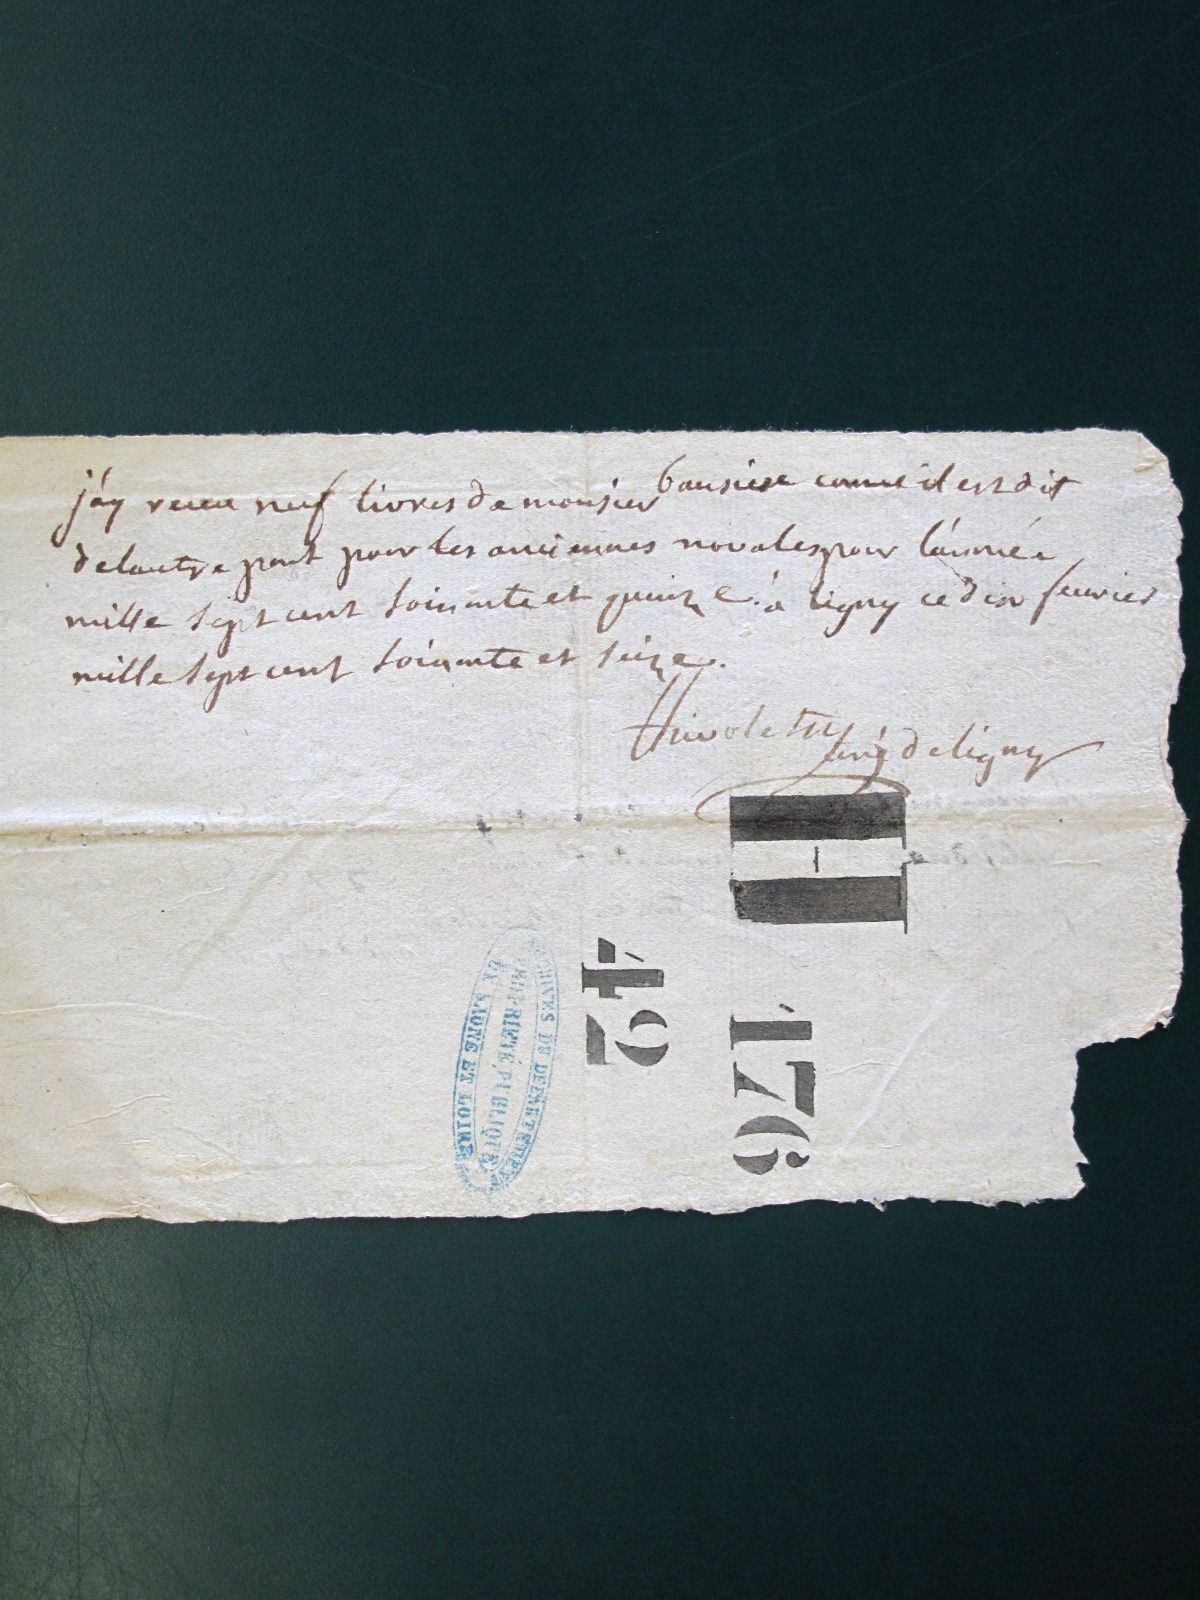 j'ay receu neuf livres de monsieur bausiere comme il est dit
de lautre part pour les anciennes novales pour l'année
mille sept cent soixante et quinze. à ligny ce dix feuvrier
mille sept cent soixante et seize.
curé de ligny
H
176
42
ARCHIVES DU DÉPARTEMENT
PROPRIÉTÉ PUBLIQUE
DE SAONE ET LOIRE